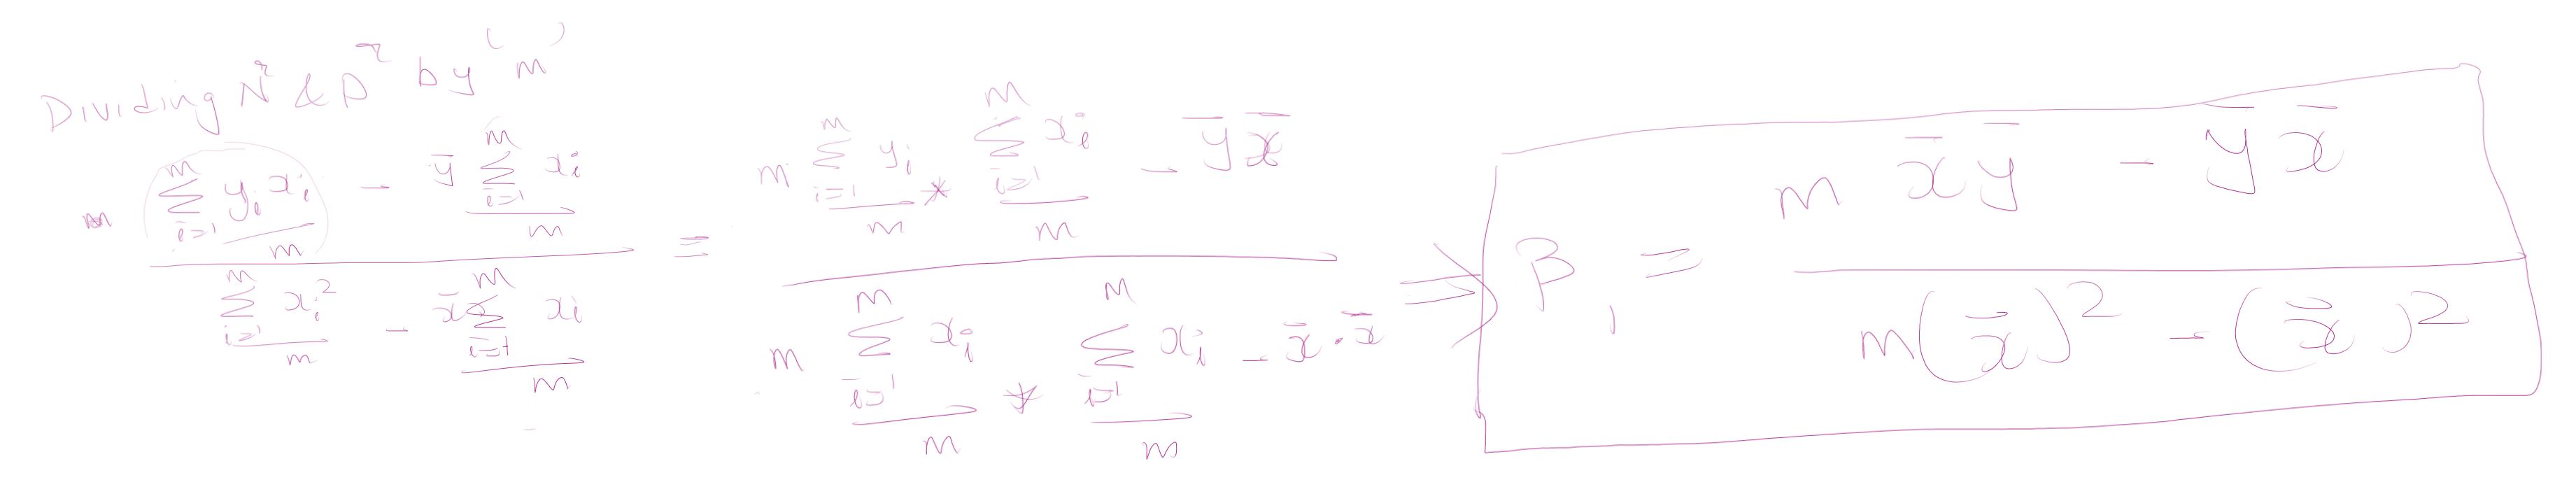 Dividing Nʳ & Dʳ by 'm'
m \frac{\frac{\sum_{i=1}^{m} y_i x_i}{m} - \bar{y} \frac{\sum_{i=1}^{m} x_i}{m}}{\frac{\sum_{i=1}^{m} x_i^2}{m} - \bar{x} \frac{\sum_{i=1}^{m} x_i}{m}} = \frac{m \frac{\sum_{i=1}^{m} y_i}{m} * \frac{\sum_{i=1}^{m} x_i}{m} - \bar{y} \bar{x}}{m \frac{\sum_{i=1}^{m} x_i}{m} * \frac{\sum_{i=1}^{m} x_i}{m} - \bar{x} \cdot \bar{x}} \Rightarrow β_1 = \frac{m \bar{x} \bar{y} - \bar{y} \bar{x}}{m (\bar{x})^2 - (\bar{x})^2}